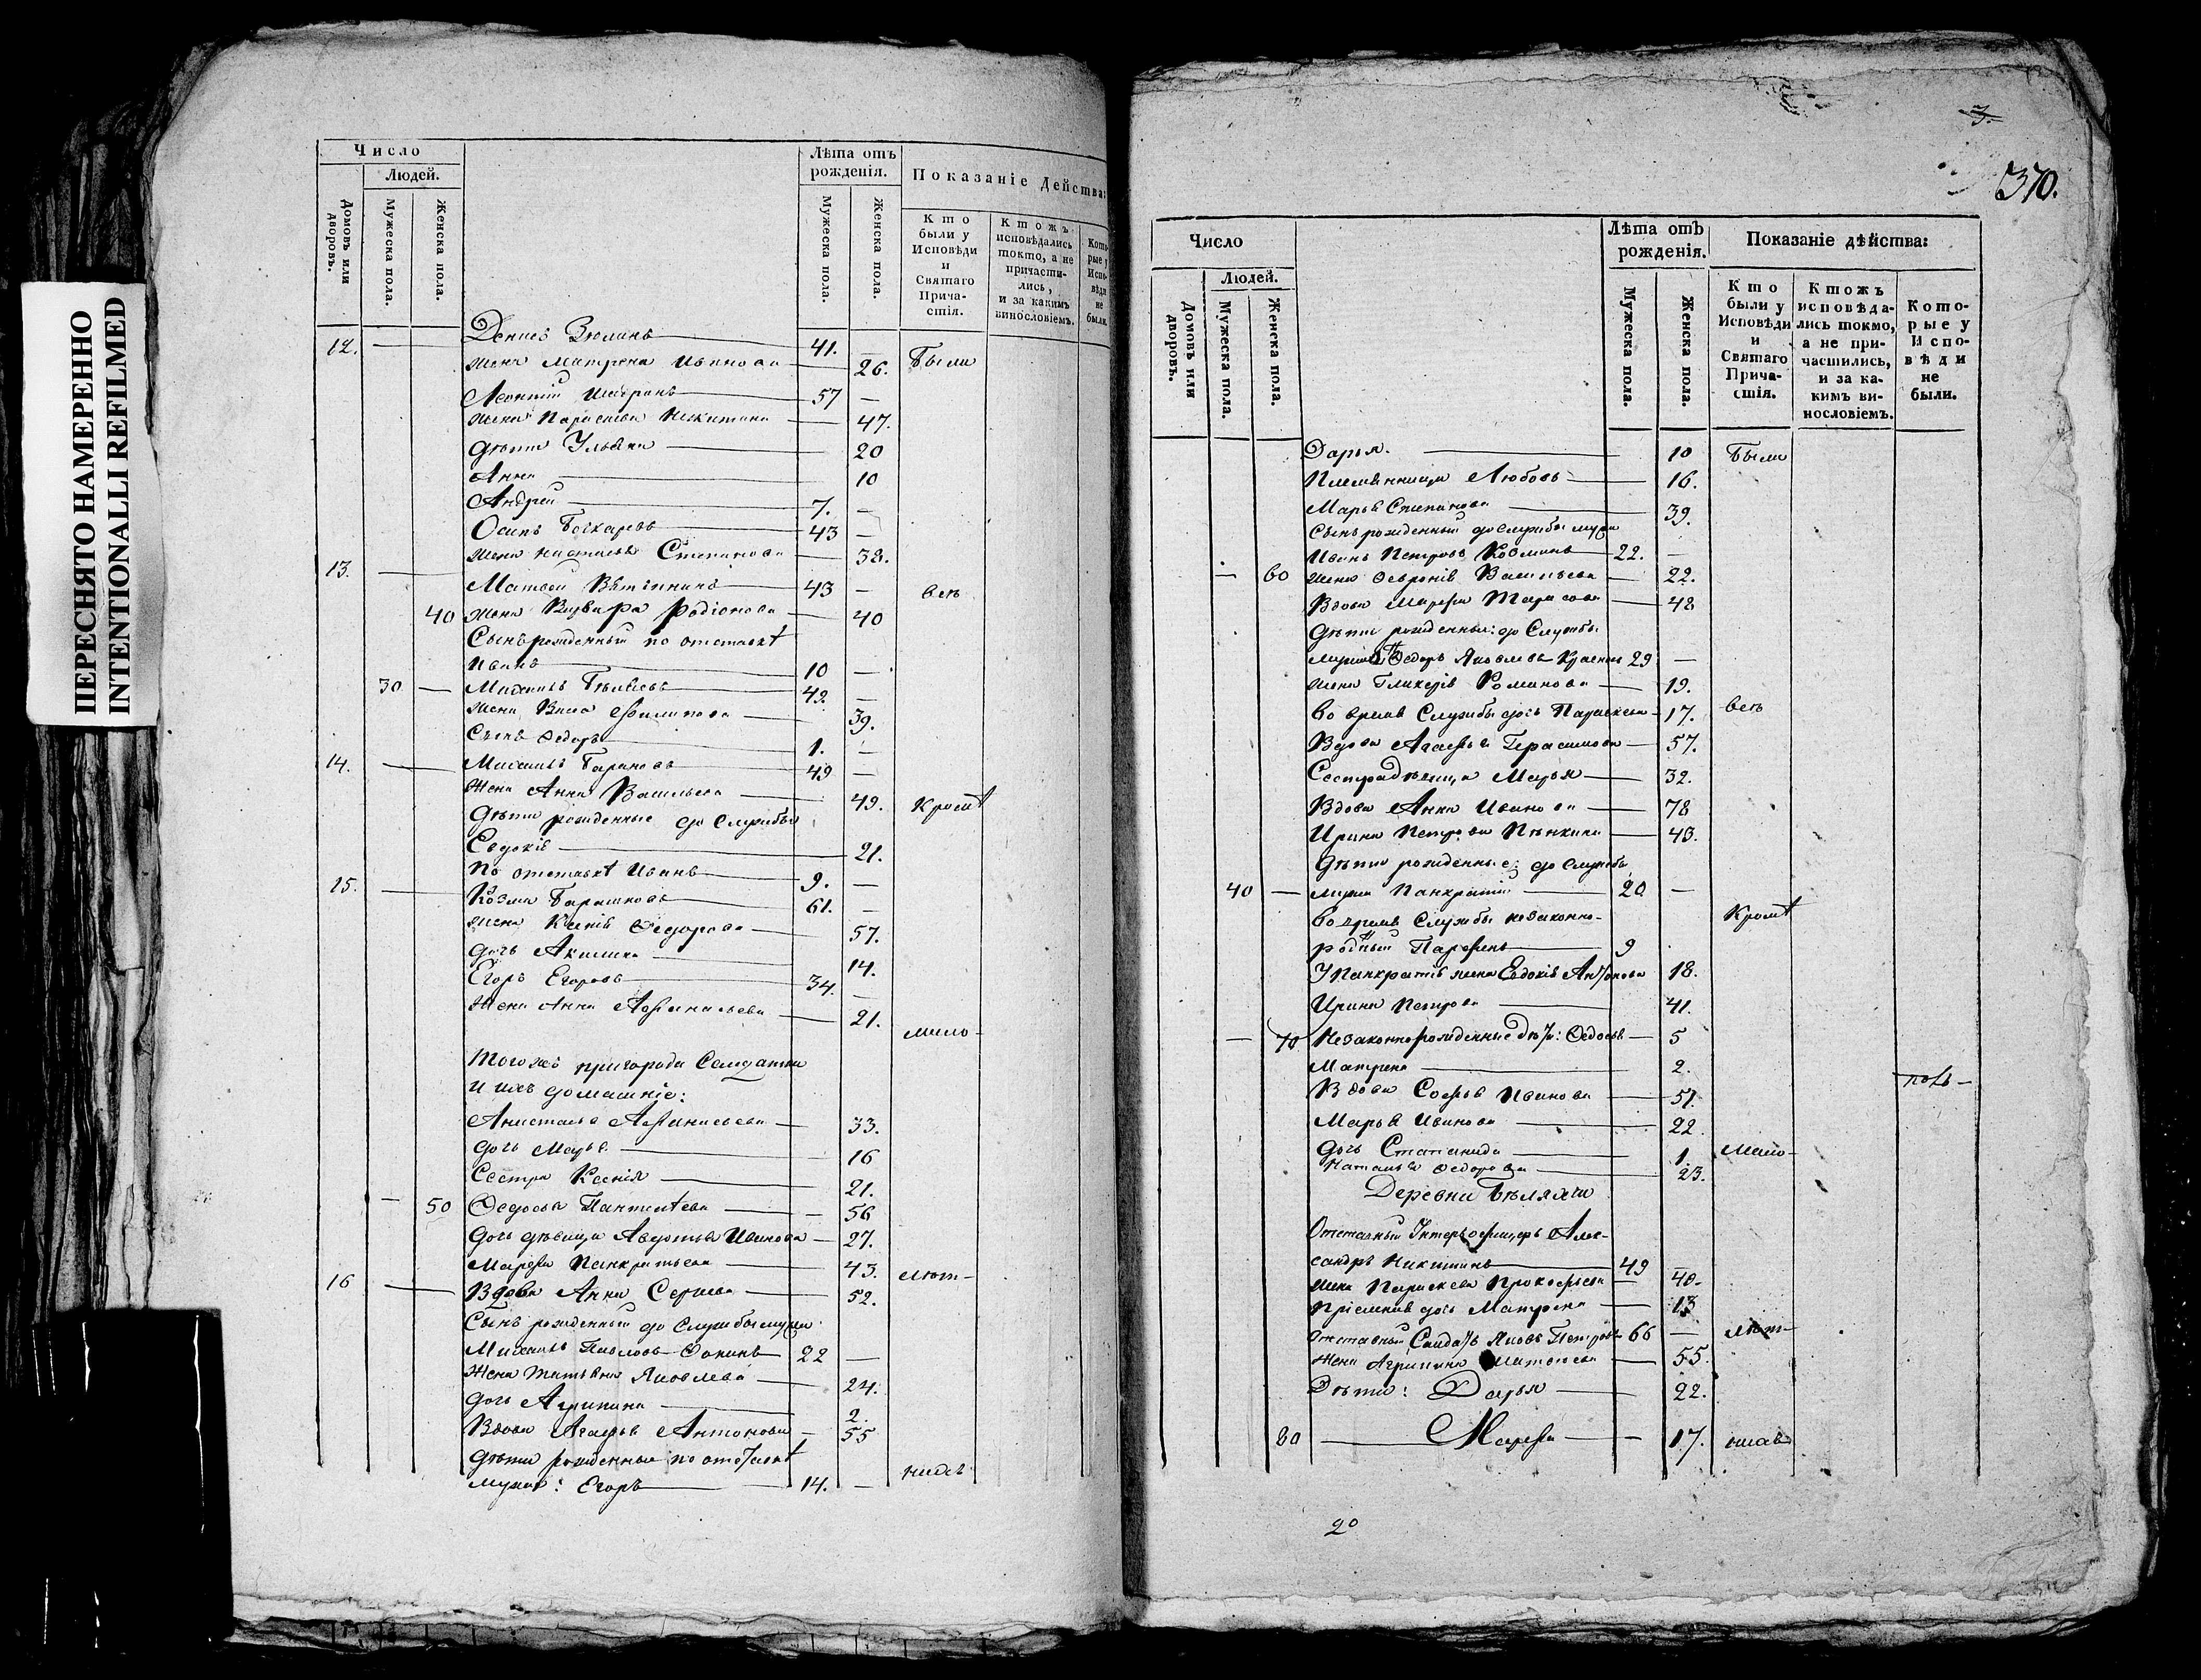 ПЕРЕСНЯТО НАМЕРЕННО
INTENTIONALLI REFILMED
Число
Людей.
Домовъ или дворовъ.
Мужеска пола.
Женска пола.
Лѣта отъ рожденія.
Мужеска пола.
Женска пола.
Показаніе Действа:
Кто были у Исповѣди и Святаго Прича-стія.
Ктожъ исповѣдались токто, а не причасти-лись, и за какимъ винословіемъ.
Кото-рые у Испо-вѣди не были.
12. Денисъ Зюлинъ 41. —
жена Матрена Иванова 26. Были
Леонтій 57 —
жена Параскева Никитина 47.
дѣти Ульяна 20
Анна 10
Андрей 7. —
Осипъ Бочкаревъ 43 —
жена Настасья Степанова 38.
13. Матвей 43 — всѣ
40 жена Варвара Родіонова 40
Сынъ рожденный по отставкѣ
Иванъ 10 —
30 — Михаилъ 42. —
жена Васса Филипова 39.
Сынъ Ѳедоръ 1. —
14. Михаилъ Барановъ 49 —
жена Анна Васильева 49. Кромѣ
дѣти рожденные до Службы
Евдокія 21.
по отставкѣ Иванъ 9. —
15. Козма Барашковъ 61. —
жена Ксенія Ѳедорова 57.
дочь Акилина 14.
Егоръ Егоровъ 34. —
жена Анна Афанасьева 21. мало-
Того жъ пригорода Солдатки
и ихъ домашніе:
Анастасья Афанасьева 33.
дочь Марья 16
Сестра Ксенія 21.
— 50 Ѳедосья Пантелѣева 56
дочь дѣвица Авдотья Иванова 27.
Марфа Панкратьева 43. лѣт-
16 Вдова Анна Сергѣева 52.
Сынъ рожденный до Службы мужа
Михаилъ Павловъ Ѳокинъ 22 —
жена Татьяна Яковлева 24.
дочь Агрипина 2.
Вдова Агафья Антонова 55
дѣти рожденные по отставкѣ
мужа: Егоръ 14. —
3.
370.
Число
Людей.
Домовъ или дворовъ.
Мужеска пола.
Женска пола.
Лѣта отъ рожденія.
Мужеска пола.
Женска пола.
Показаніе дѣйства:
Кто были у Исповѣди и Святаго Прича-стія.
Ктожъ исповѣда-лись токмо, а не при-частились, и за ка-кимъ ви-нословіемъ.
Кото-рые у Испо-вѣди не были.
Дарья. 10 Были
Племянница Любовь 16.
Марья Степанова 39.
Сынъ рожденный до Службы мужа
Иванъ Петровъ Козминъ 22. —
— 60 жена Ѳевронія Васильева 22.
Вдова Марфа Тарасова 48
дѣти рожденные: до Службы
мужа Ѳедоръ Яковлевъ 29 —
жена Гликерія Романова 19.
во время Службы дочь Параскева 17. всѣ
Вдова Агафья Герасимова 57.
Сестра дѣвица Марья 32.
Вдова Анна Иванова 78
Ирина Петрова Пѣнкина 43.
дѣти рожденные: до Службы
40 — мужа Панкратій 20 —
во время Службы незаконно- Кромѣ
родный Парфенъ 9
У Панкратія жена Евдокія Антонова 18.
Ирина Петрова 41.
— 70 Незаконнорожденные дѣти: Ѳедосья 5
Матрена 2.
Вдова Софья Иванова 51.
Марья Иванова 22.
дочь Степанида 1 мало-
Наталья Ѳедорова 23.
Деревни Бѣляхчи
Отставный Унтеръофицеръ Алек-
сандръ Никитинъ 49 —
жена Параскева Прокофьева 40.
Пріемная дочь Матрена 13
Отставный Солдатъ Яковъ Петровъ 66 — лѣт-
жена Агрипина 55.
Дѣти: Дарья 22.
80 Марфа 17.
20